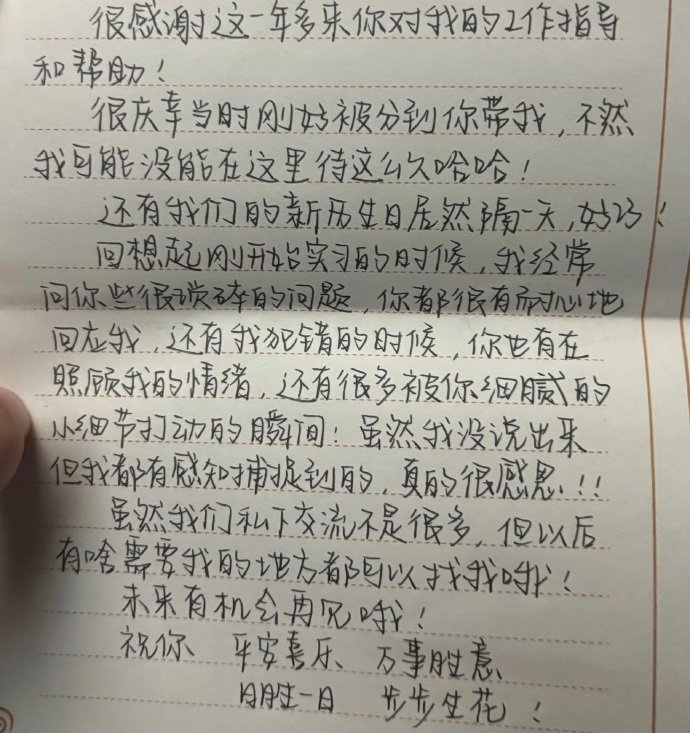 很感谢这一年多来你对我的工作指导
和帮助!
很庆幸当时刚好被分到你带我,不然
我可能没能在这里待这么久哈哈!
还有我们的新历生日居然隔一天,好巧!
回想起刚开始实习的时候,我经常
问你些很琐碎的问题,你都很有耐心地
回应我,还有我犯错的时候,你也有在
照顾我的情绪,还有很多被你细腻的
小细节打动的瞬间!虽然我没说出来
但我都有感知捕捉到的,真的很感恩!!!
虽然我们私下交流不是很多,但以后
有啥需要我的地方都可以找我哦!
未来有机会再见哦!
祝你 平安喜乐、万事胜意
日胜一日 步步生花!